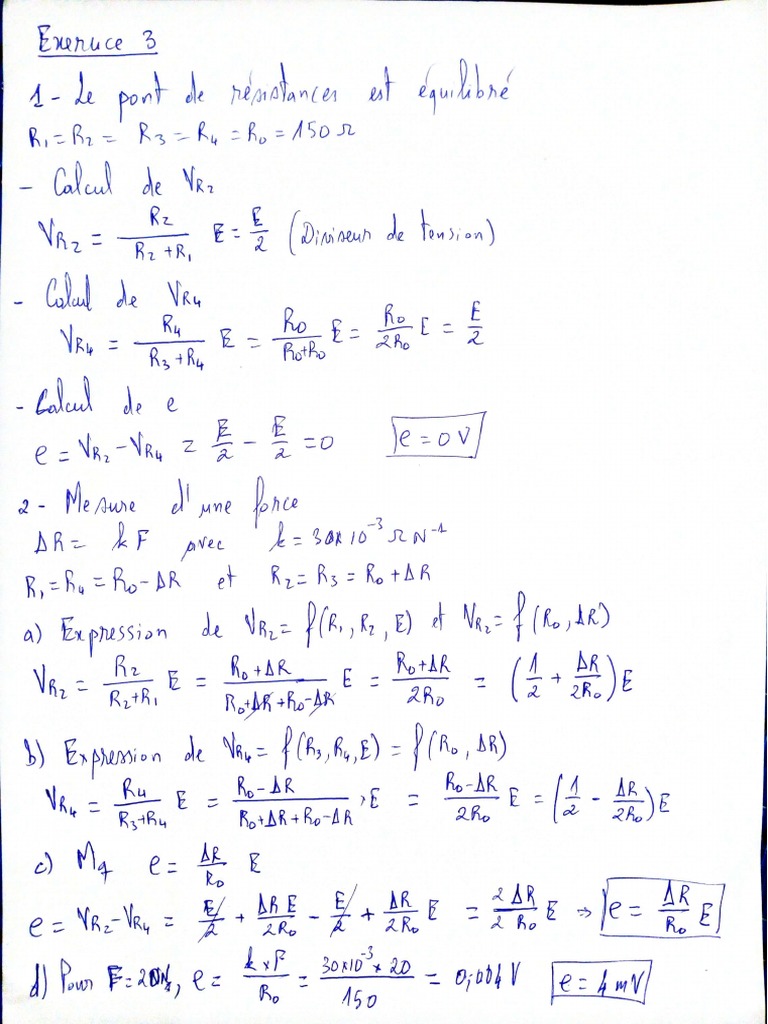 Exercice 3
1 - Le pont de résistances est équilibré
R₁ = R₂ = R₃ = R₄ = R₀ = 150 Ω
- Calcul de V_R₂
V_R₂ = R₂/(R₂+R₁) E = E/2 (Diviseur de tension)
- Calcul de V_R₄
V_R₄ = R₄/(R₃+R₄) E = R₀/(R₀+R₀) E = R₀/(2R₀) E = E/2
- Calcul de e
e = V_R₂ - V_R₄ = E/2 - E/2 = 0 e = 0 V
2 - Mesure d'une force
ΔR = k F avec k = 30×10⁻³ Ω N⁻¹
R₁ = R₄ = R₀ - ΔR et R₂ = R₃ = R₀ + ΔR
a) Expression de V_R₂ = f(R₁, R₂, E) et V_R₂ = f(R₀, ΔR)
V_R₂ = R₂/(R₂+R₁) E = (R₀+ΔR)/(R₀+ΔR+R₀-ΔR) E = (R₀+ΔR)/(2R₀) = (1/2 + ΔR/(2R₀)) E
b) Expression de V_R₄ = f(R₃, R₄, E) = f(R₀, ΔR)
V_R₄ = R₄/(R₃+R₄) E = (R₀-ΔR)/(R₀+ΔR+R₀-ΔR) · E = (R₀-ΔR)/(2R₀) E = (1/2 - ΔR/(2R₀)) E
c) Mq e = ΔR/R₀ E
e = V_R₂ - V_R₄ = E/2 + ΔR E/(2R₀) - E/2 + ΔR/(2R₀) E = 2ΔR/(2R₀) E → e = ΔR/R₀ E
d) Pour F = 20N, e = (k×F)/R₀ = (30×10⁻³×20)/150 = 0,004 V e = 4 mV